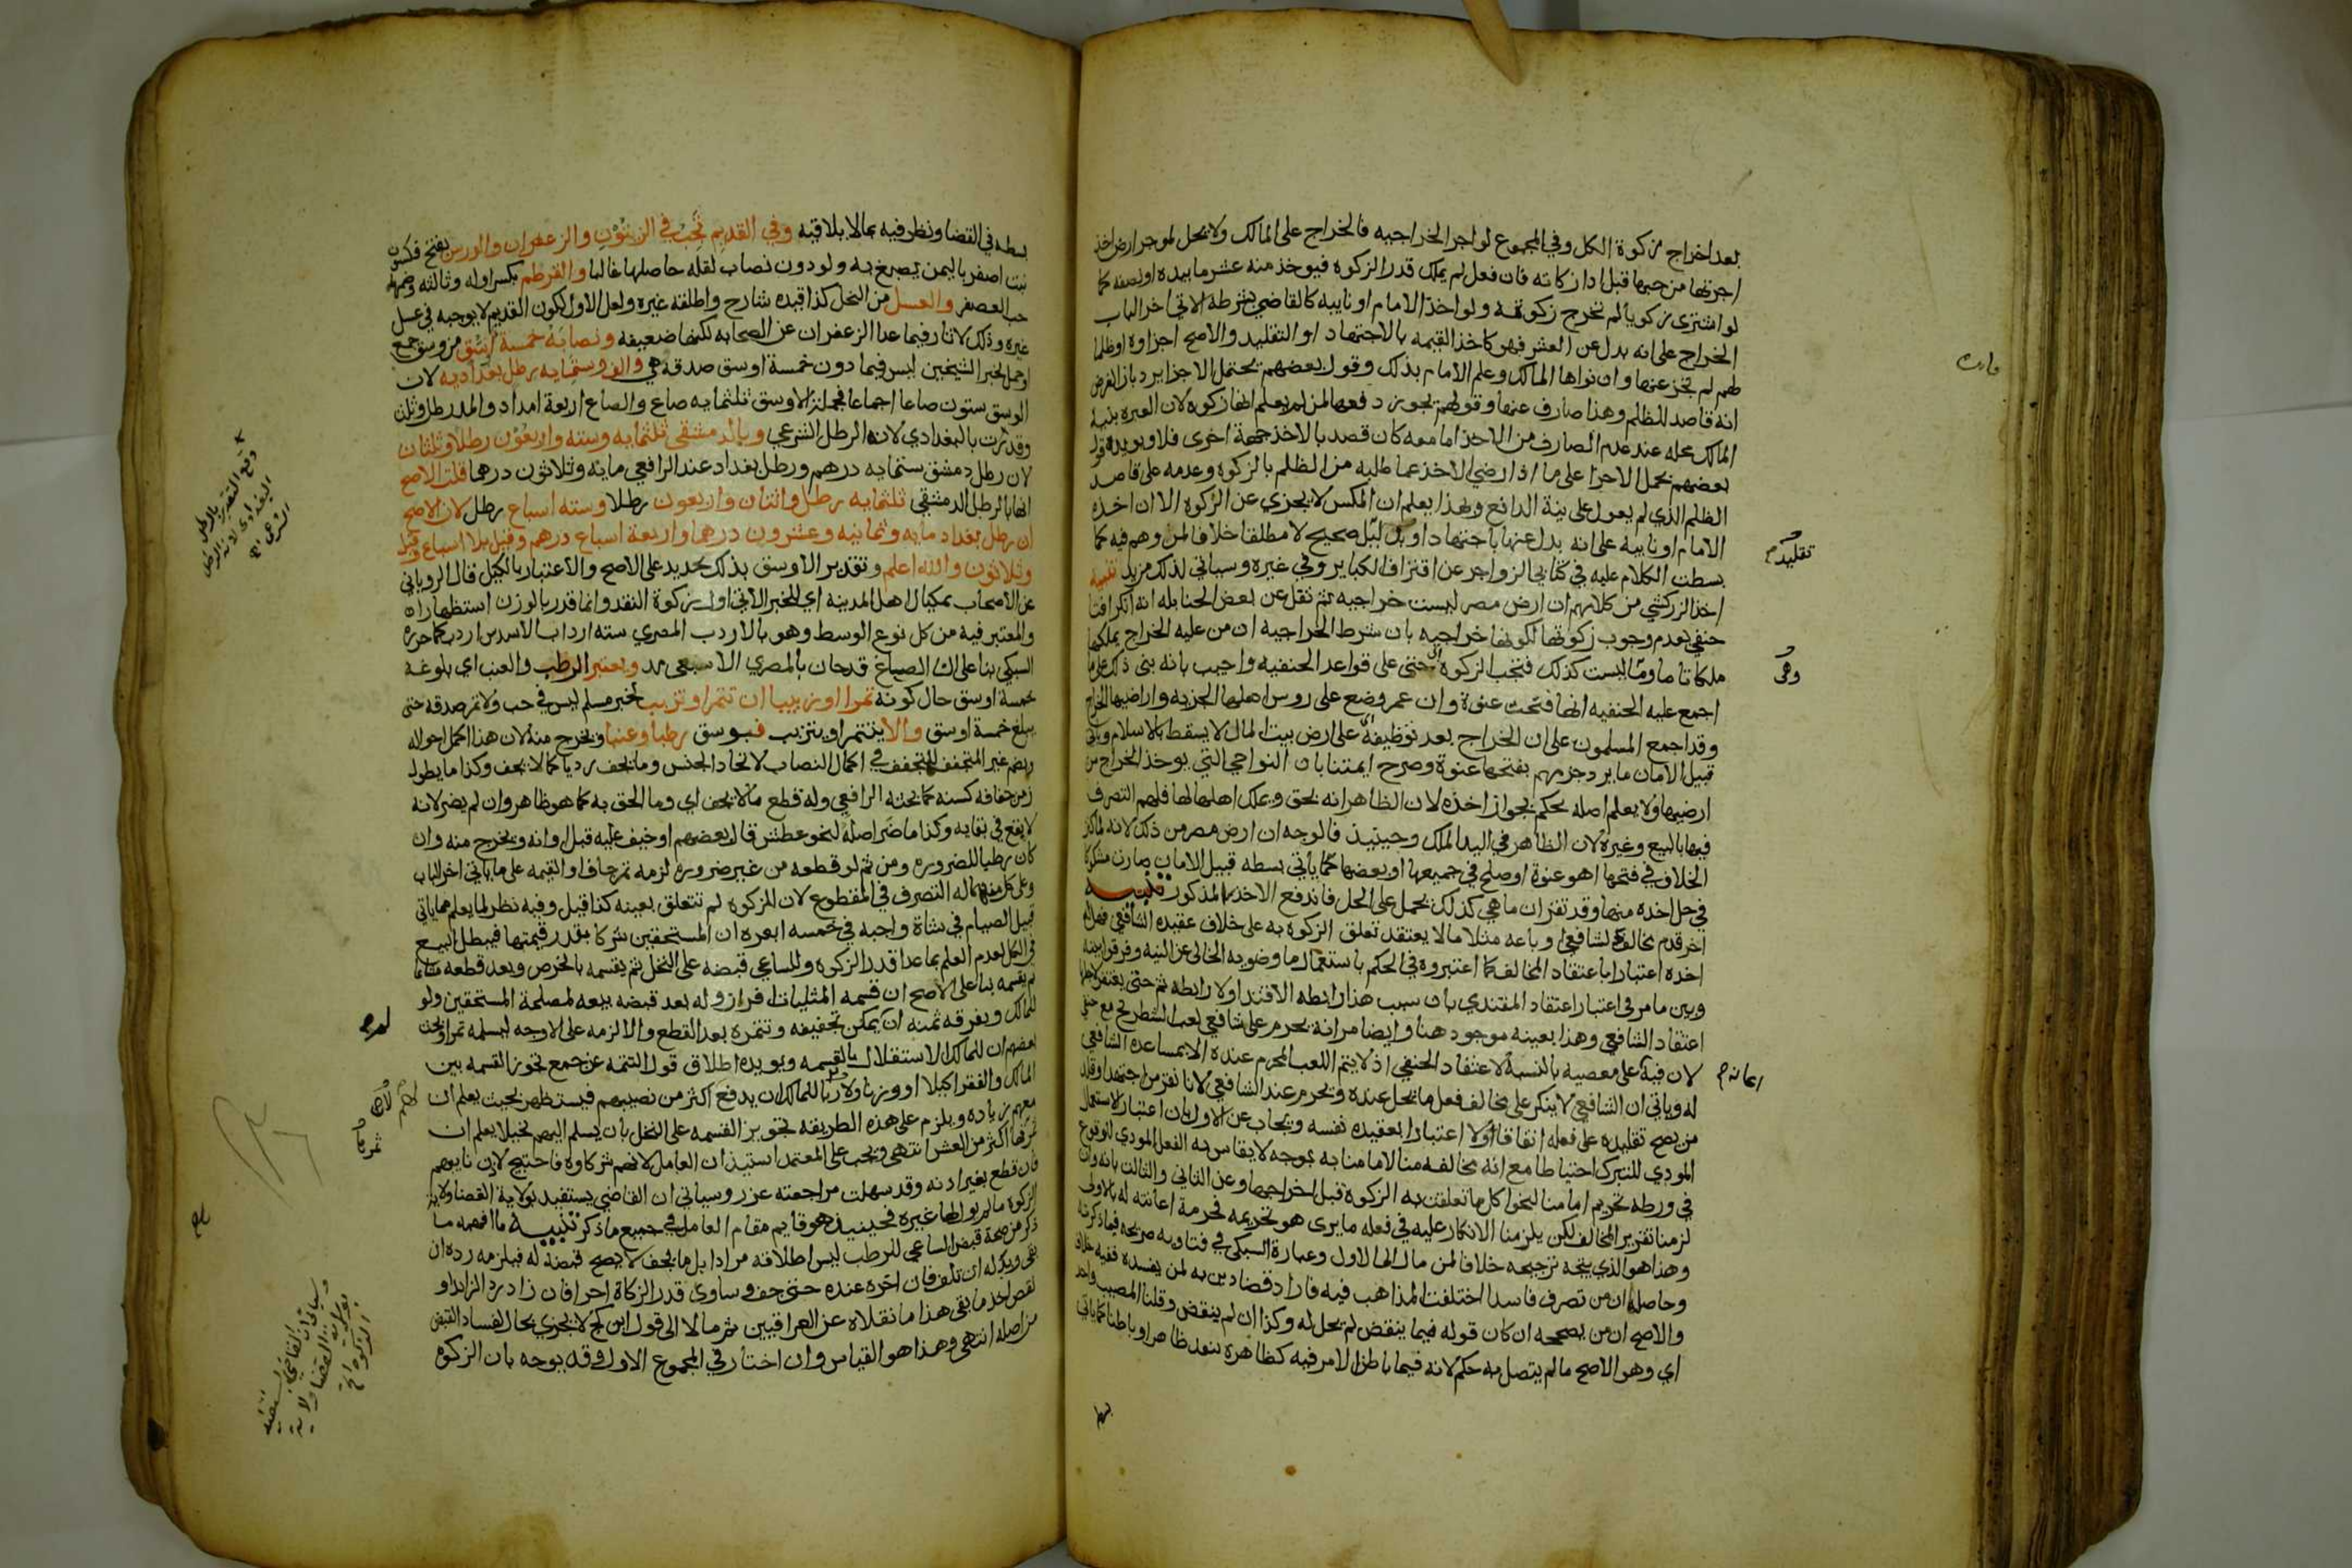 بعد اخراج زكوة الكل وفي المجموع لو اجر الخراجيه فالخراج على المالك ولا يحل لموجر ارض اخذ
اجرتها من حبها قبل ادا زكاته فان فعل لم يملك قدر الزكوه فيوخذ منه عشر ما بيده او نصفه كما
لو اشترى زكويا لم تخرج زكوته ولو اخذ الامام او نايبه كالقاضي بشرطه الاتي اخر الباب
الخراج على انه بدل عن العشر فهو كاخذ القيمه بالاجتهاد او التقليد والاصح اجزاوه او ظلما
لم يجز عنها وان نواها المالك وعلم الامام بذلك وقول بعضهم يحتمل الاجزا يرد بان الفرض
انه قاصد للظلم وهذا صارف عنها وقولهم يجوز دفعها لمن لم يعلم انها زكوه لان العبره بنية
المالك محله عند عدم الصارف من الاخذ اما معه كان قصد بالاخذ جهة اخرى فلا ويويده قول
بعضهم يحمل الاجزا على ما اذا رضي الاخذ عما طلبه من الظلم بالزكوه وعدمه على قاصد
الظلم الذي لم يعول على نية الدافع وبهذا يعلم ان المكس لا يجزي عن الزكوه الا ان اخذه
الامام او نايبه على انه بدل عنها باجتهاد او تقليد صحيح لا مطلقا خلافا لمن وهم فيه كما
بسطت الكلام عليه في كتابي الزواجر عن اقتراف الكباير وفي غيره وسياتي لذلك مزيد تنبيه
اخذ الزركشي من كلامهم ان ارض مصر ليست خراجيه ثم نقل عن بعض الحنابله انه انكر افتا
حنفي بعدم وجوب زكوتها لكونها خراجيه بان شرط الخراجية ان من عليه الخراج يملكها
ملكا تاما وهي ليست كذلك فتجب الزكوه حتى على قواعد الحنفيه واجيب بانه بنى ذلك على ما
اجمع عليه الحنفيه انها فتحت عنوة وان عمر وضع على روس اهلها الجزيه واراضيها الخراج
وقد اجمع المسلمون على ان الخراج بعد توظيفه على ارض بيت المال لا يسقط بالاسلام وياتي
قبيل الامان ما يرد جزمهم بفتحها عنوة وصرح ايمتنا بان النواحي التي يوخذ الخراج من
ارضيها ولا يعلم اصله يحكم بجواز اخذه لان الظاهر انه بحق وبملك اهلها لها فلهم التصرف
فيها بالبيع وغيره لان الظاهر في اليد الملك وحينيذ فالوجه ان ارض مصر من ذلك لانه لما كثر
الخلاف في فتحها اهو عنوة او صلح في جميعها او بعضها كما ياتي بسطه قبيل الامان صارت مشكوكا
في حل اخذه منها وقد تقرر ان ما هي كذلك يحمل على الحل فاندفع الاخذ المذكور تنبيه
اخر قدم مخالف لشافعي او باعه مثلا مالا يعتقد تعلق الزكوه به على خلاف عقيده الشافعي فهل له
اخذه اعتبارا باعتقاد المخالف كما اعتبروه في الحكم باستعمال ما وضويه الخالي عن النيه وفرقوا بينه
وبين ما مر في اعتبار اعتقاد المقتدي بان سبب هذا رابطه الاقتدا ولا رابطه ثم حتى يعتقد
اعتقاد الشافعي وهذا بعينه موجود هنا وايضا مر انه يحرم على شافعي لعب الشطرنج مع حنفي
لان فيه اعانة على معصيه بالنسبة لاعتقاد الحنفي اذ لا يتم اللعب المحرم عنده الا بمساعدة الشافعي
له وياتي ان الشافعي لا ينكر على مخالف فعل ما يحل عنده ويحرم عند الشافعي لانا نقر من اجتهد او قلد
من يصح تقليده على فعله اتفاقا اولا اعتبارا بعقيده نفسه ويجاب عن الاول بان اعتبار الاستعمال
المودي للترك احتياطا مع انه مخالفه منا لامامنا به بوجه لا يقاس به الفعل المودي لوقوع
في ورطه تحريم امامنا لنحو اكل ما تعلقت به الزكوة قبل اخراجها وعن الثاني والثالث بانه وان
لزمنا تقرير المخالف لكن يلزمنا الانكار عليه في فعله ما يرى هو تحريمه فحرمة اعانته له بالاولى
وهذا هو الذي يتجه ترجيحه خلافا لمن مال الى الاول وعبارة السبكي في فتاويه صريحه فيما ذكرته
وحاصلها ان من تصرف فاسدا اختلفت المذاهب فيه فاراد قضا دين به لمن يفسده ففيه خلاف
والاصح ان من يصححه ان كان قوله فيما ينقض لم يحل له وكذا ان لم ينقض وقلنا المصيب واحد
اي وهو الاصح ما لم يتصل به حكم لانه فيما باطن الامر فيه كظاهره ينفذ ظاهرا وباطنا كما ياتي
تقليد
وهي
اعانة
بسطه في القضا ونظر فيه بما لا يلاقيه وفي القديم تجب في الزيتون والزعفران والورس بفتح فسكون
نبت اصفر باليمن يصبغ به ولو دون نصاب لقله حاصلها غالبا والقرطم بكسر اوله وثالثه وضمهما
حب العصفر والعسل من النحل كذا قيده شارح واطلقه غيره ولعل الاول لكون القديم لا يوجبه في عسل
غيره وذلك لاثار فيما عدا الزعفران عن الصحابه لكنها ضعيفه ونصابه خمسة اوسق من وسق جمع
او حمل لخبر الشيخين ليس فيما دون خمسة اوسق صدقة وهي الف وستمايه رطل بغداديه لان
الوسق ستون صاعا اجماعا فجملة الاوسق ثلثمايه صاع والصاع اربعة امداد والمد رطل وثلث
وقدرت بالبغدادي لانه الرطل الشرعي وبالدمشقي ثلثمايه وسته واربعون رطلا وثلثان
لان رطل دمشق ستمايه درهم ورطل بغداد عند الرافعي مايه وثلاثون درهما قلت الاصح
انها بالرطل الدمشقي ثلثمايه رطل واثنان واربعون رطلا وسته اسباع رطل لان الاصح
ان رطل بغداد مايه وثمانيه وعشرون درهما واربعة اسباع درهم وقيل بلا اسباع وقيل
وثلاثون والله اعلم وتقدير الاوسق بذلك تحديد على الاصح والاعتبار بالكيل قال الروياني
عن الاصحاب بمكيال اهل المدينه اي للخبر الاتي اول زكوة النقد وانما قدر بالوزن استظهارا
والمعتبر فيه من كل نوع الوسط وهو بالاردب المصري سته ارداب الا سدس اردب كما حرره
السبكي بنا على ان الصاع قدحان بالمصري الا سبعي مد ويعتبر الرطب والعنب اي بلوغه
خمسة اوسق حال كونه تمرا او زبيبا ان تتمر او تزبب لخبر مسلم ليس في حب ولا تمر صدقه حتى
يبلغ خمسة اوسق والا يتتمر او يتزبب فيوسق رطبا وعنبا ويخرج منه لان هذا اكمل احواله
ويضم غير المتجفف للمتجفف في اكمال النصاب لاتحاد الجنس وما يجف رديا كما لا يجف وكذا ما يطول
زمن جفافه كسنه كما بحثه الرافعي وله قطع ما لا يجف اي وما الحق به كما هو ظاهر وان لم يضر لانه
لا نفع في بقايه وكذا ما ضر اصله لنحو عطش قال بعضهم او خيف عليه قبل اوانه ويخرج منه وان
كان رطبا للضروره ومن ثم لو قطعه من غير ضروره لزمه تمر جاف او القيمه على ما ياتي اخر الباب
له التصرف في المقطوع لان الزكوه لم تتعلق بعينه كذا قيل وفيه نظر لما يعلم مما ياتي
قبيل الصيام في شاة واجبه في خمسه ابعره ان المستحقين شركا بقدر قيمتها فيبطل البيع
في الكل لعدم العلم بما عدا قدر الزكوه وللساعي قبضه على النخل ثم يقسمه بالخرص وبعد قطعه
ثم يقسمه بنا على الاصح ان قسمه المثليات افراز وله بعد قبضه بيعه لمصلحة المستحقين ولو
للمالك ويفرقه ثمنه ان لم يمكن تجفيفه وتتمره بعد القطع والا لزمه على الاوجه ليسلمه تمرا وبحث
بعضهم ان للمالك الاستقلال بالقسمه ويويده اطلاق قول التتمه عن جمع تجوز القسمه بين
المالك والفقرا كيلا او وزنا ولا ربا للمالك ان يدفع اكثر من نصيبهم فيستظهر بحيث يعلم ان
معهم زياده ويلزم على هذه الطريقه تجويز القسمه على النخل بان يسلم اليهم نخيلا يعلم ان
ثمرتها اكثر من العشر انتهى ويجب على المعتمد استيذان العامل لانهم شركاوه فاحتيج لاذن نايبهم
فان قطع بغير اذنه وقد سهلت مراجعته عزر وسياتي ان القاضي يستفيد بولاية القضا ولاية
الزكوه ما لم يول لها غيره فحينيذ هو قايم مقام العامل في جميع ما ذكر تنبيه ما افهمه ما
ذكر من صحة قبض الساعي للرطب ليس اطلاقه مرادا بل ما يجف لا يصح قبضه له فيلزمه رده ان
بقي وبدله ان تلف فان اخره عنده حتى جف وساوى قدر الزكاة اجزا فان زاد رد الزايد او
نقص اخذ ما بقي هذا ما نقلاه عن العراقيين ثم مالا الى قول ابن كج لا يجزي بحال لفساد القبض
من اصله انتهى وهذا هو القياس وان اختار في المجموع الاول وقد يوجه بان الزكوة
وسياتي ان القاضي يستفيد
بولاية القضا ولاية
الزكوة الخ